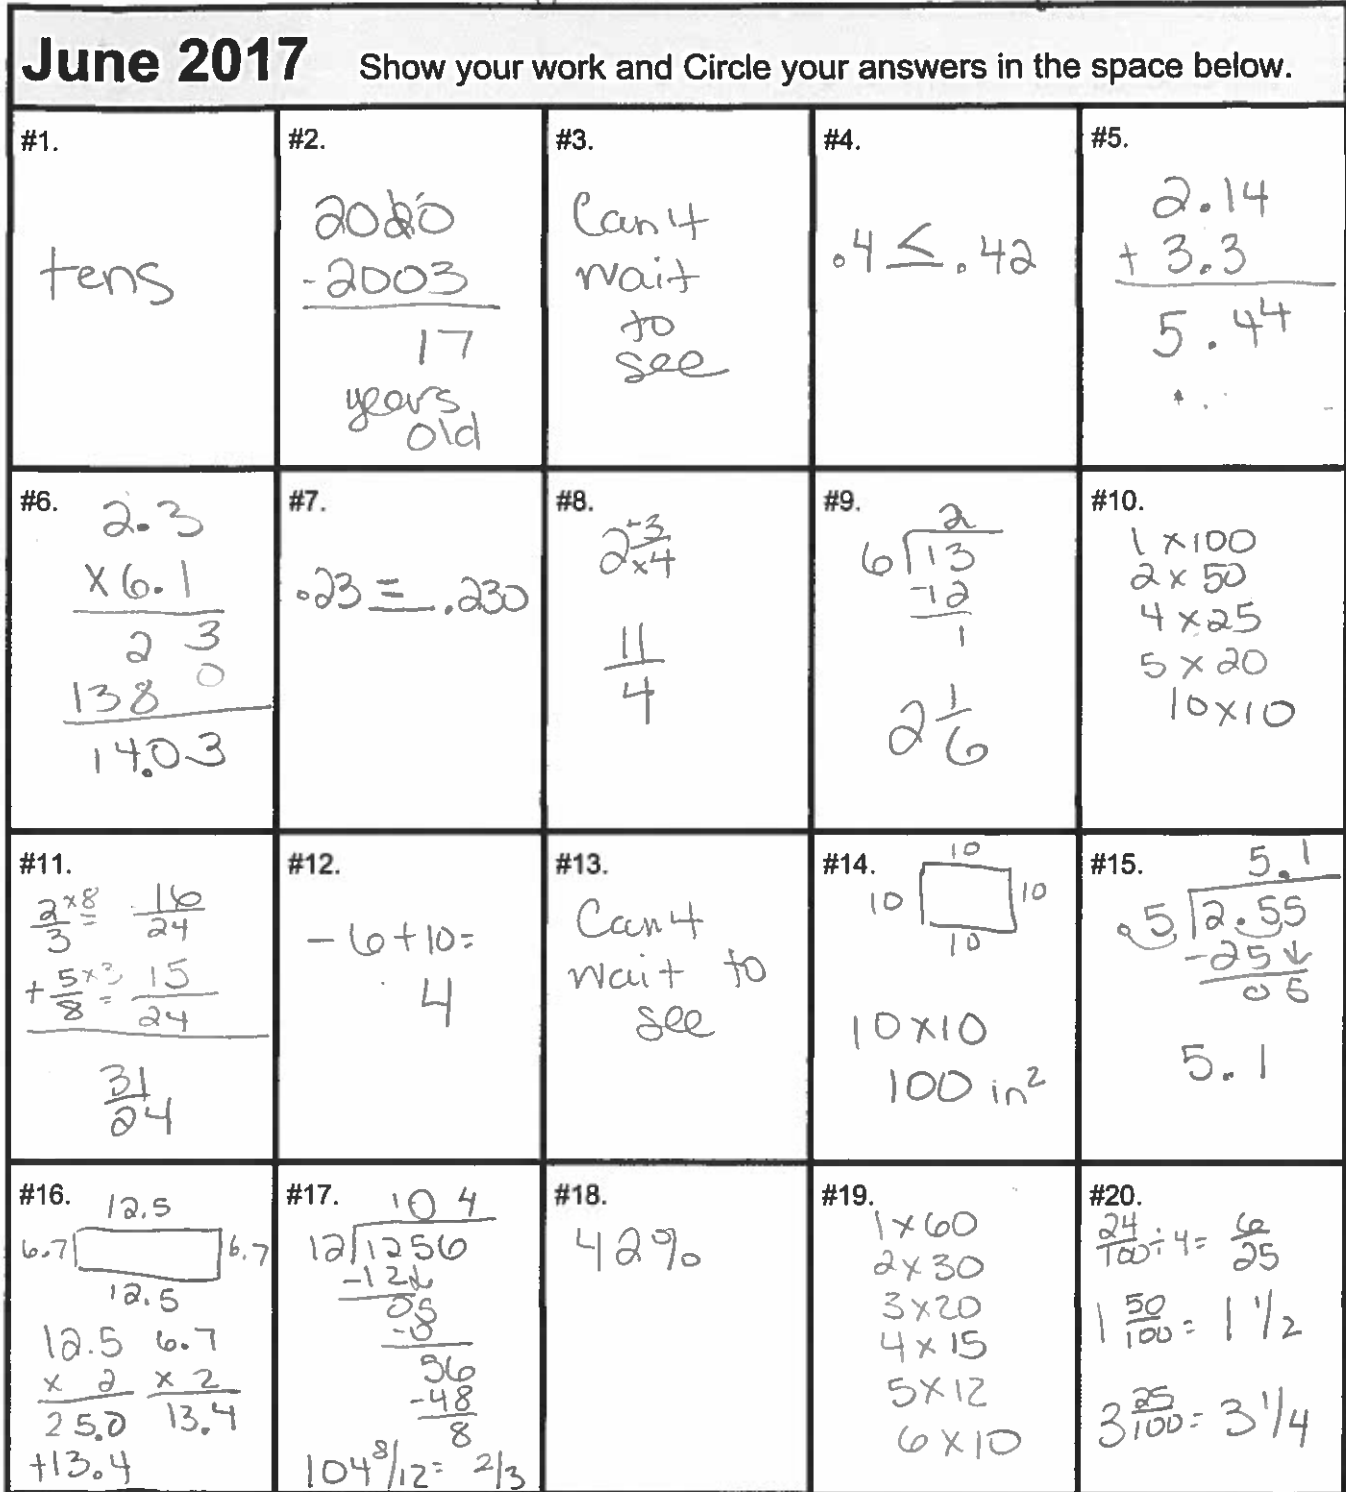 June 2017 Show your work and Circle your answers in the space below.
#1.
tens
#2.
2020
-2003
17
years
old
#3.
Can't
wait
to
see
#4.
.4 < .42
#5.
2.14
+ 3.3
5.44
#6.
2.3
x 6.1
2 3
138 0
14.03
#7.
.23 = .230
#8.
2 +3/x4
11/4
#9.
2
6 13
-12
1
2 1/6
#10.
1 x 100
2 x 50
4 x 25
5 x 20
10 x 10
#11.
2/3 x8 = 16/24
+ 5/8 x3 = 15/24
31/24
#12.
-6+10=
4
#13.
Can't
wait to
see
#14.
10
10 10
10
10 x 10
100 in²
#15.
5.1
.5 2.55
-25
05
5.1
#16.
12.5
6.7 6.7
12.5
12.5 6.7
x 2 x 2
25.0 13.4
+13.4
#17.
10 4
12 1256
-12
05
-0
56
-48
8
104 8/12 = 2/3
#18.
42%
#19.
1 x 60
2 x 30
3 x 20
4 x 15
5 x 12
6 x 10
#20.
24/100 ÷ 4 = 6/25
1 50/100 = 1 1/2
3 25/100 = 3 1/4